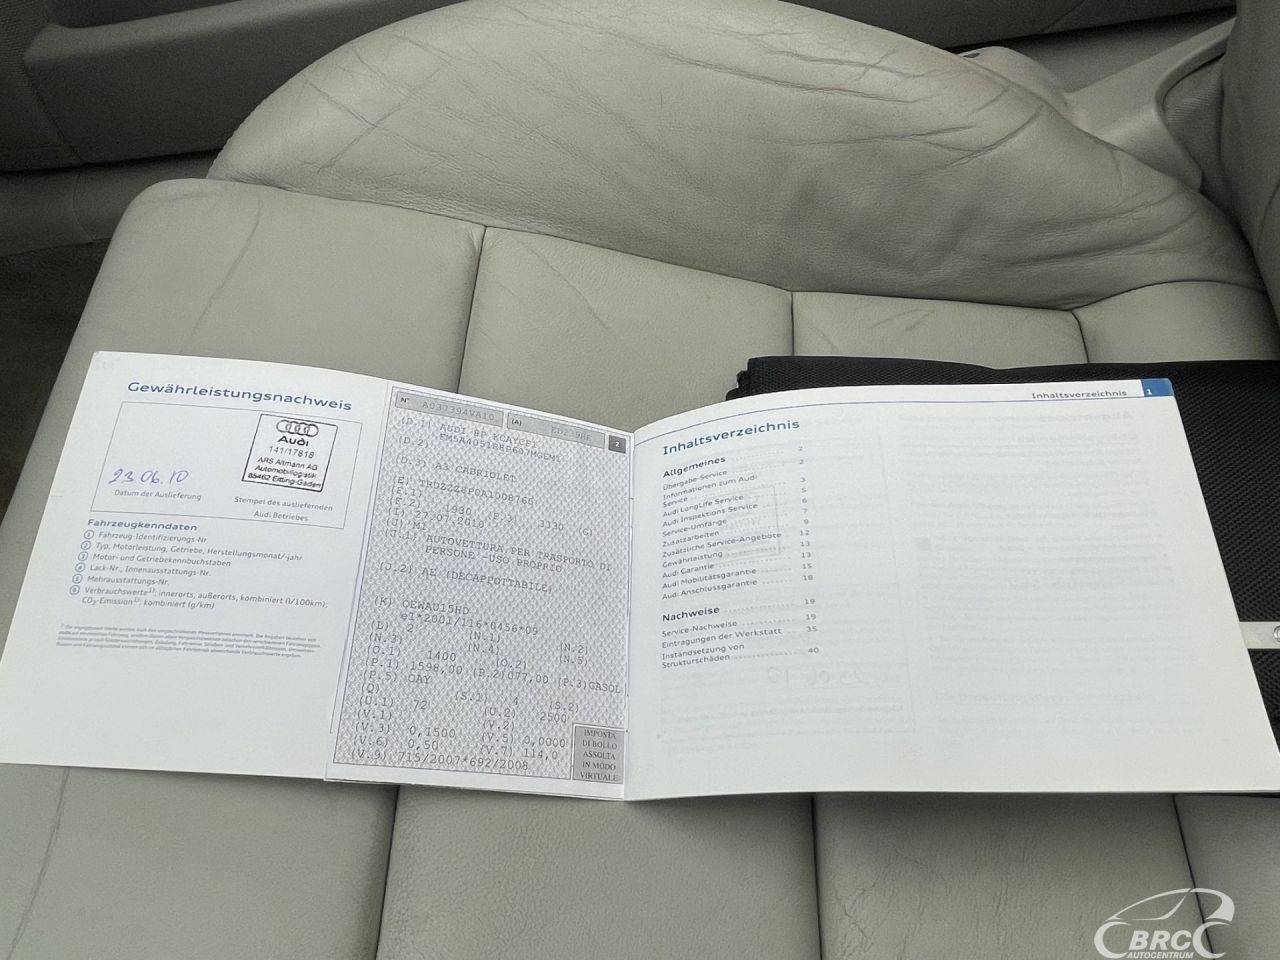 Gewährleistungsnachweis
Audi
141/17818
ARS Altmann AG
Automobillogistik
85462 Eitting-Gaden
23.06.10
Datum der Auslieferung
Stempel des ausliefernden
Audi Betriebes
Fahrzeugkenndaten
1 Fahrzeug-Identifizierungs-Nr.
2 Typ, Motorleistung, Getriebe, Herstellungsmonat/-jahr
3 Motor- und Getriebekennbuchstaben
4 Lack-Nr., Innenausstattungs-Nr.
5 Mehrausstattungs-Nr.
6 Verbrauchswerte¹⁾; innerorts, außerorts, kombiniert (l/100km);
CO₂-Emission¹⁾: kombiniert (g/km)
N° A037394VA10 (A) 2
(D.1) AUDI 8P XCAYCF1
(D.2)
(D.3) A3 CABRIOLET
(E) TRUZZZ8P0A1008766
(F.1)
(F.2) 1930 (F.3)
(I) 27.07.2010 (G)
(J) M1
(J.1) AUTOVETTURA PER TRASPORTO DI
PERSONE -USO PROPRIO
(J.2) AE (DECAPPOTTABILE)
(K) OEWAU15HD
e1*2001/116*0456*09
(L) (N.1) (N.2)
(N.3) (N.4) (N.5)
(O.1) 1400 (O.2)
(P.1) 1598,00 (P.2)077,00 (P.3)GASOL
(P.5) CAY
(Q) (S.1) 4 (S.2)
(U.1) 72 (U.2) 2500
(V.1) (V.2)
(V.3) 0,1500 (V.5) 0,0000
(V.6) 0,50 (V.7) 114,0
(V.9) 715/2007*692/2008
IMPOSTA
DI BOLLO
ASSOLTA
IN MODO
VIRTUALE
Inhaltsverzeichnis 1
Inhaltsverzeichnis
Allgemeines 2
Übergabe-Service 2
Informationen zum Audi
Service 3
Audi LongLife Service 5
Audi Inspektions Service 6
Service-Umfänge 7
Zusatzarbeiten 9
Zusätzliche Service-Angebote 12
Gewährleistung 13
Audi Garantie 13
Audi Mobilitätsgarantie 15
Audi Anschlussgarantie 18
Nachweise 19
Service-Nachweise 19
Eintragungen der Werkstatt 35
Instandsetzung von
Strukturschäden 40
BRC
AUTOCENTRUM